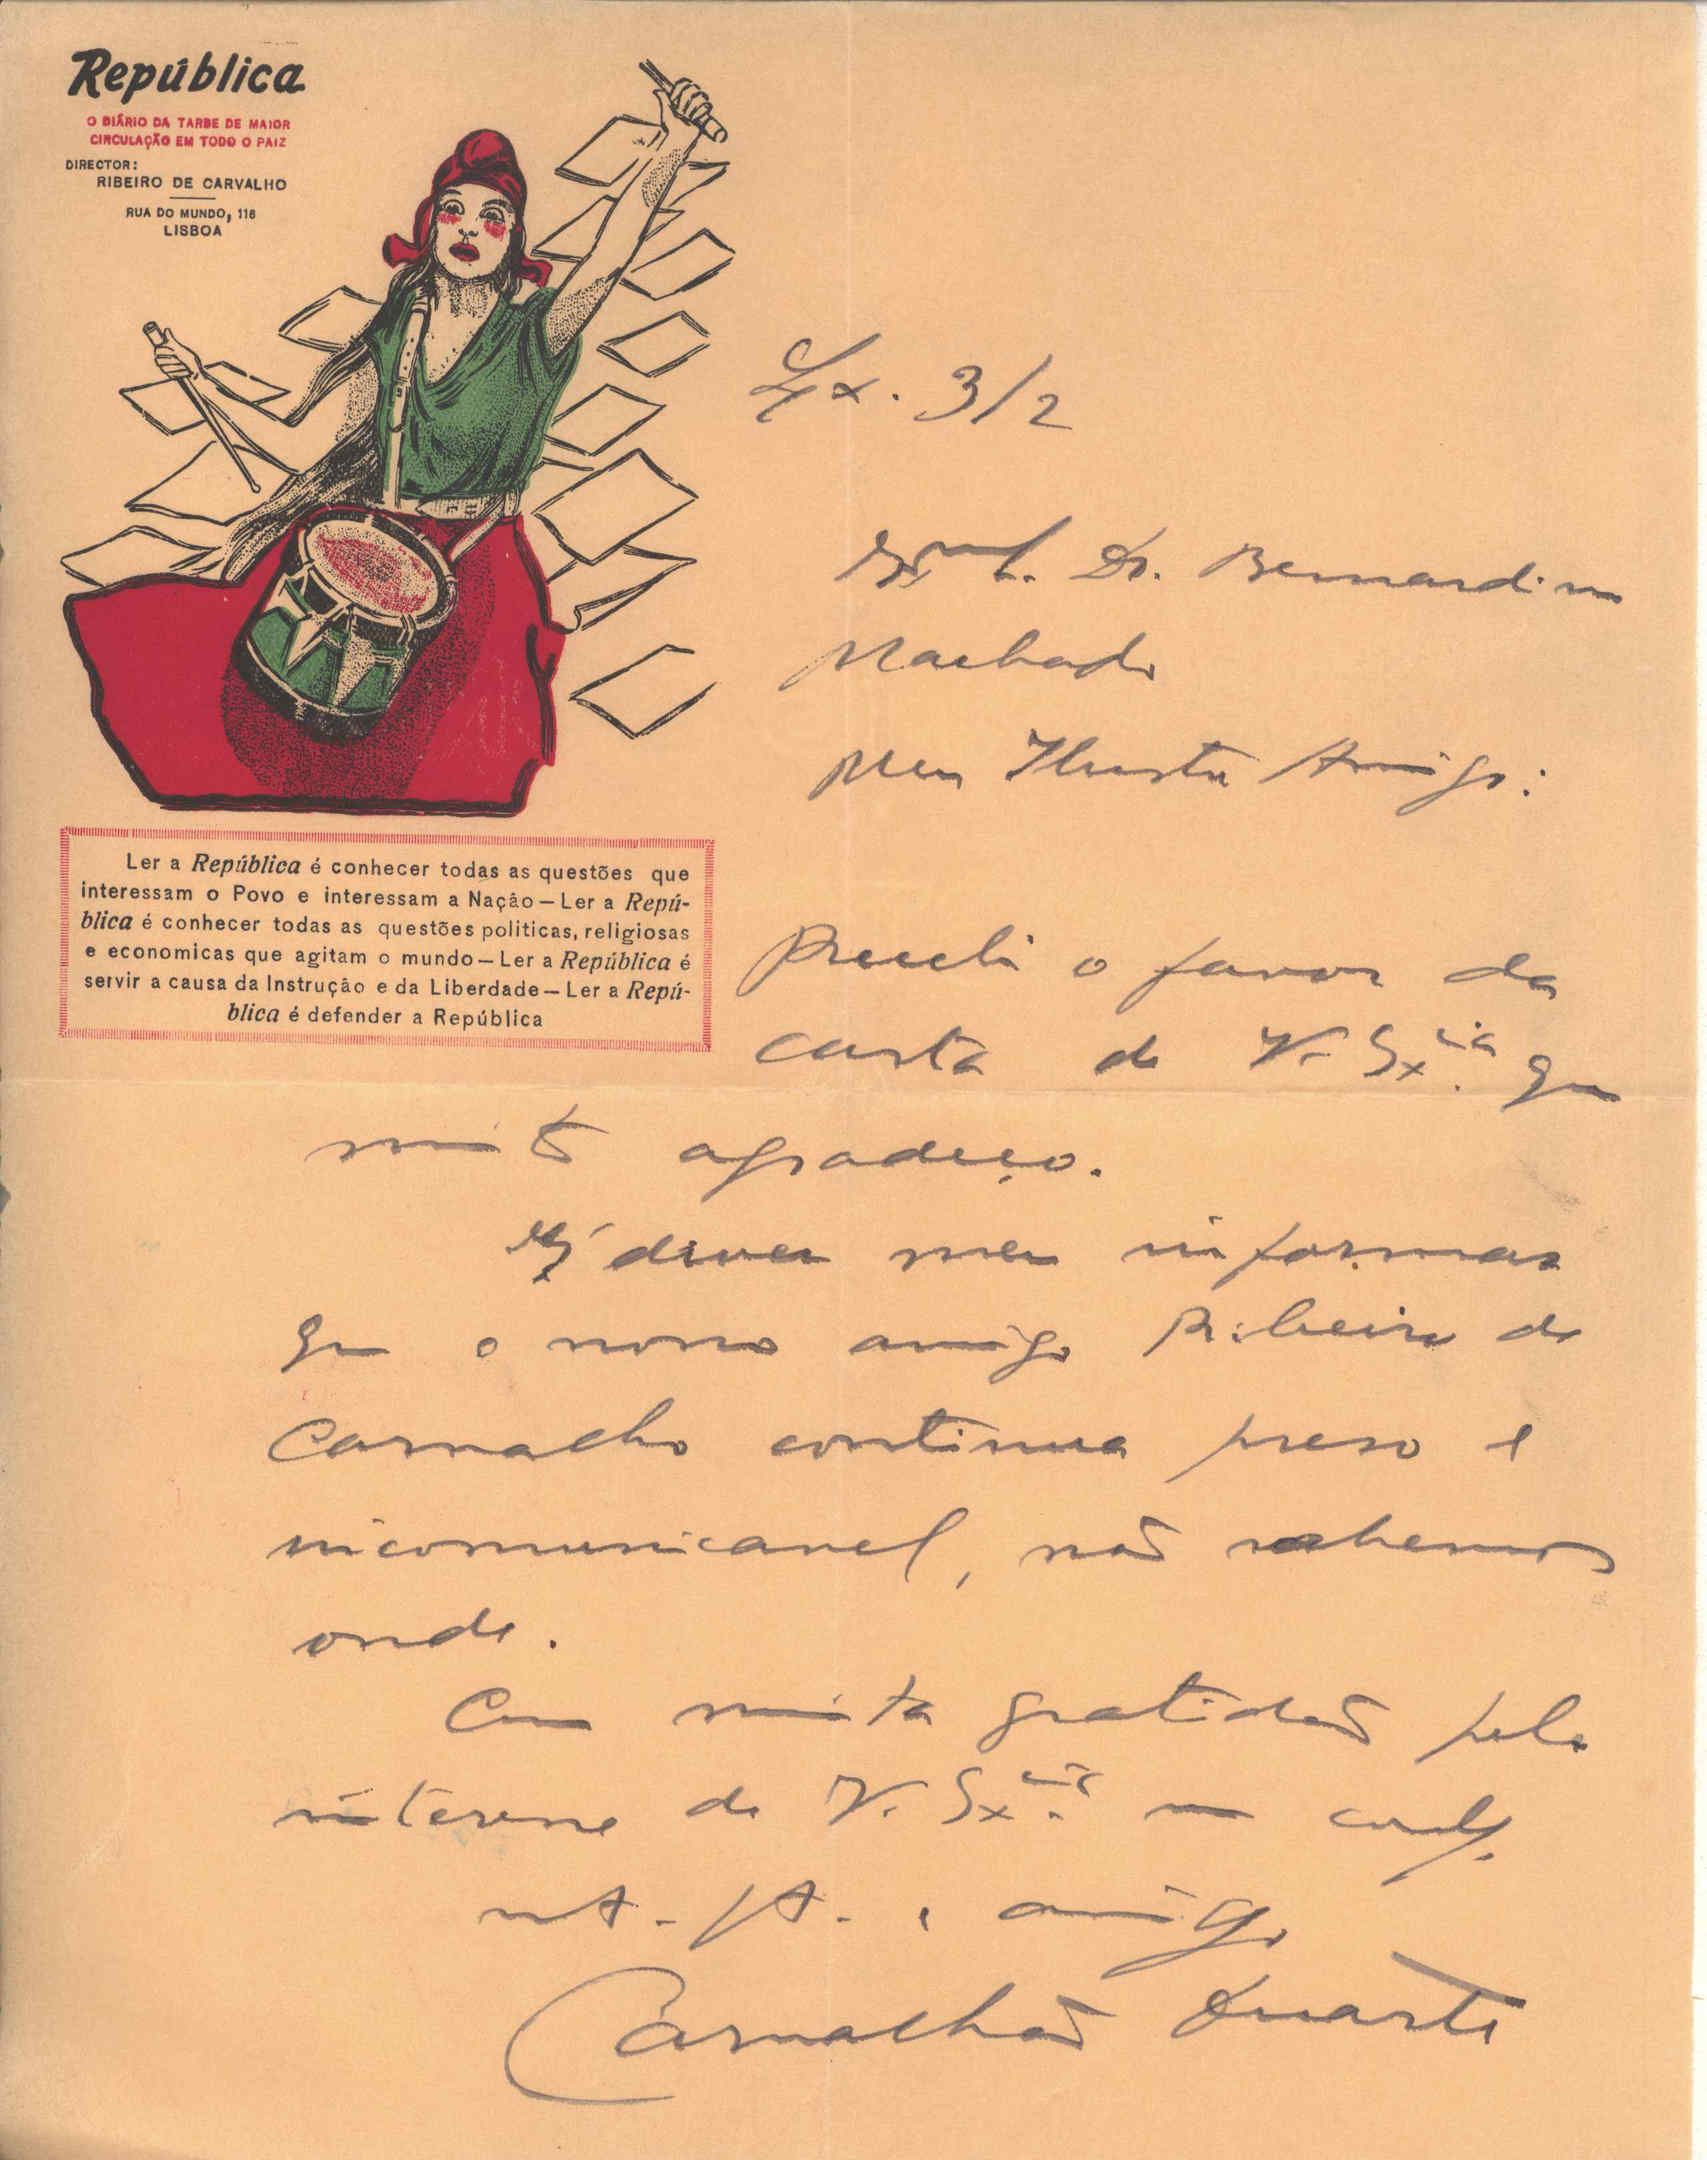 República
O DIÁRIO DA TARDE DE MAIOR
CIRCULAÇÃO EM TODO O PAIZ
DIRECTOR:
RIBEIRO DE CARVALHO
RUA DO MUNDO, 116
LISBOA
Lx. 3/2
Dr. Bernardino
Machado
Meu Ilustre Amigo:
Ler a República é conhecer todas as questões que
interessam o Povo e interessam a Nação — Ler a Repú-
blica é conhecer todas as questões politicas, religiosas
e economicas que agitam o mundo — Ler a República é
servir a causa da Instrução e da Liberdade — Ler a Repú-
blica é defender a República
Recebi o favor da
carta de V. Ex.cia que
muito agradeço.
devem informar
que o nosso amigo Ribeiro de
Carvalho continua preso e
incomunicavel, não sabemos
onde.
Com muita gratidão pelo
interesse de V. Ex.cia
amigo
Carvalhão Duarte